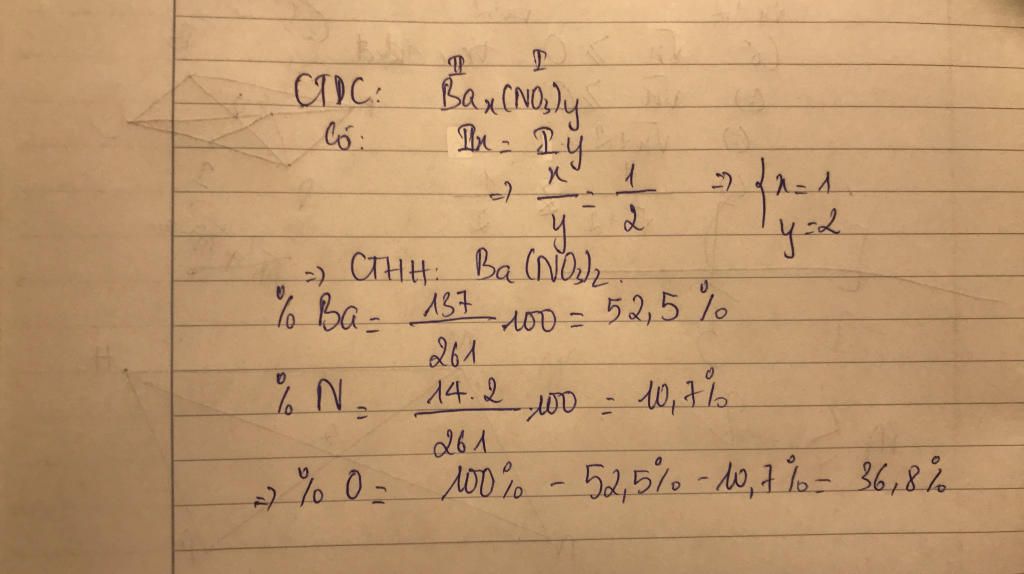 II I
CTDC: Bax(NO3)y
Có: IIx = I.y
=> x/y = 1/2 => { x = 1
y = 2
=> CTHH: Ba(NO3)2.
% Ba = 137/261 .100 = 52,5 %
% N = 14.2/261 .100 = 10,7%
=> % O = 100% - 52,5% - 10,7% = 36,8%